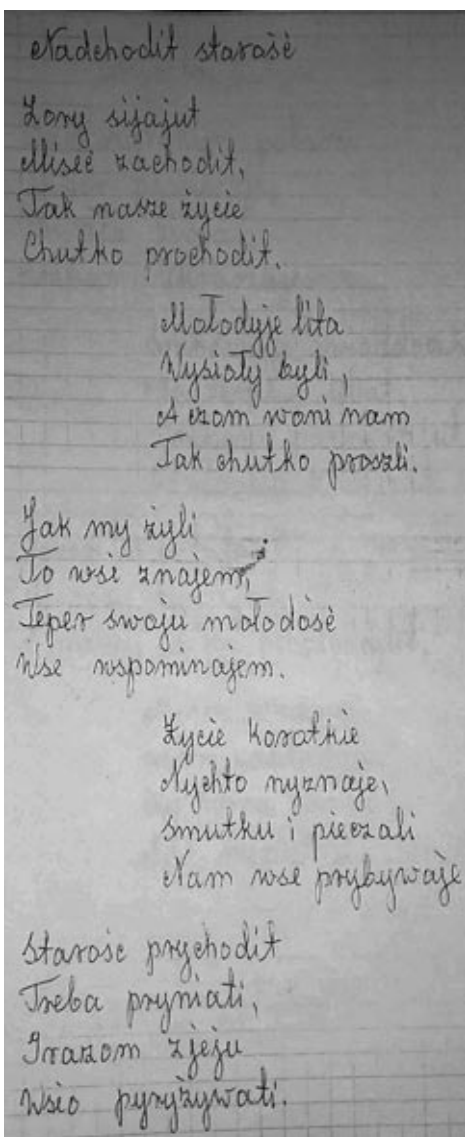 Nadchodit starość
Zory sijajut
Miseć zachodit,
Tak nasze życie
Chutko prochodit.
Mołodyje lita
Wysioły byli,
A czom woni nam
Tak chutko proszli.
Jak my żyli
To wsi znajem,
Teper swoju mołodość
Wse wspominajem.
Życie korotkie
Nychto nyznaje,
Smutku i pieczali
Nam wse prybywaje
Starość prychodit
Treba pryniati,
I razom zjeju
Wsio pyryżywati.